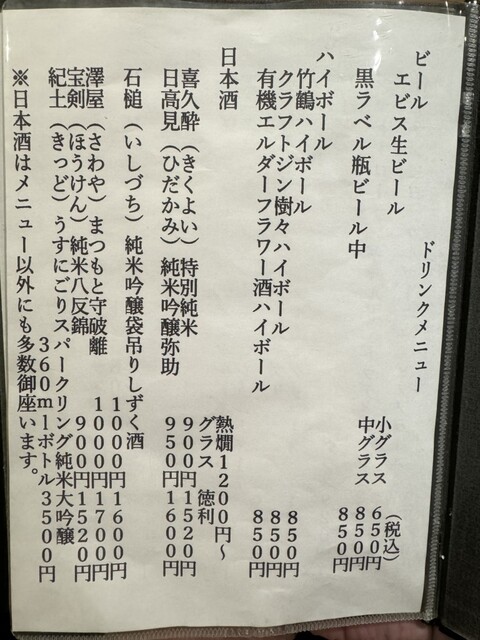 ドリンクメニュー
(税込)
ビール
エビス生ビール 小グラス 650円
中グラス 850円
黒ラベル瓶ビール中 850円
ハイボール
竹鶴ハイボール 850円
クラフトジン樹々ハイボール 850円
有機エルダーフラワー酒ハイボール 850円
日本酒 熱燗1200円～
グラス 徳利
喜久酔(きくよい)特別純米 900円 1520円
日高見(ひだかみ)純米吟醸弥助 950円 1600円
石槌(いしづち)純米吟醸袋吊りしずく酒 1000円 1600円
澤屋(さわや)まつもと守破離 1000円 1700円
宝剣(ほうけん)純米八反錦 900円 1520円
紀土(きっど)うすにごりスパークリング純米大吟醸
360mlボトル3500円
※日本酒はメニュー以外にも多数御座います。